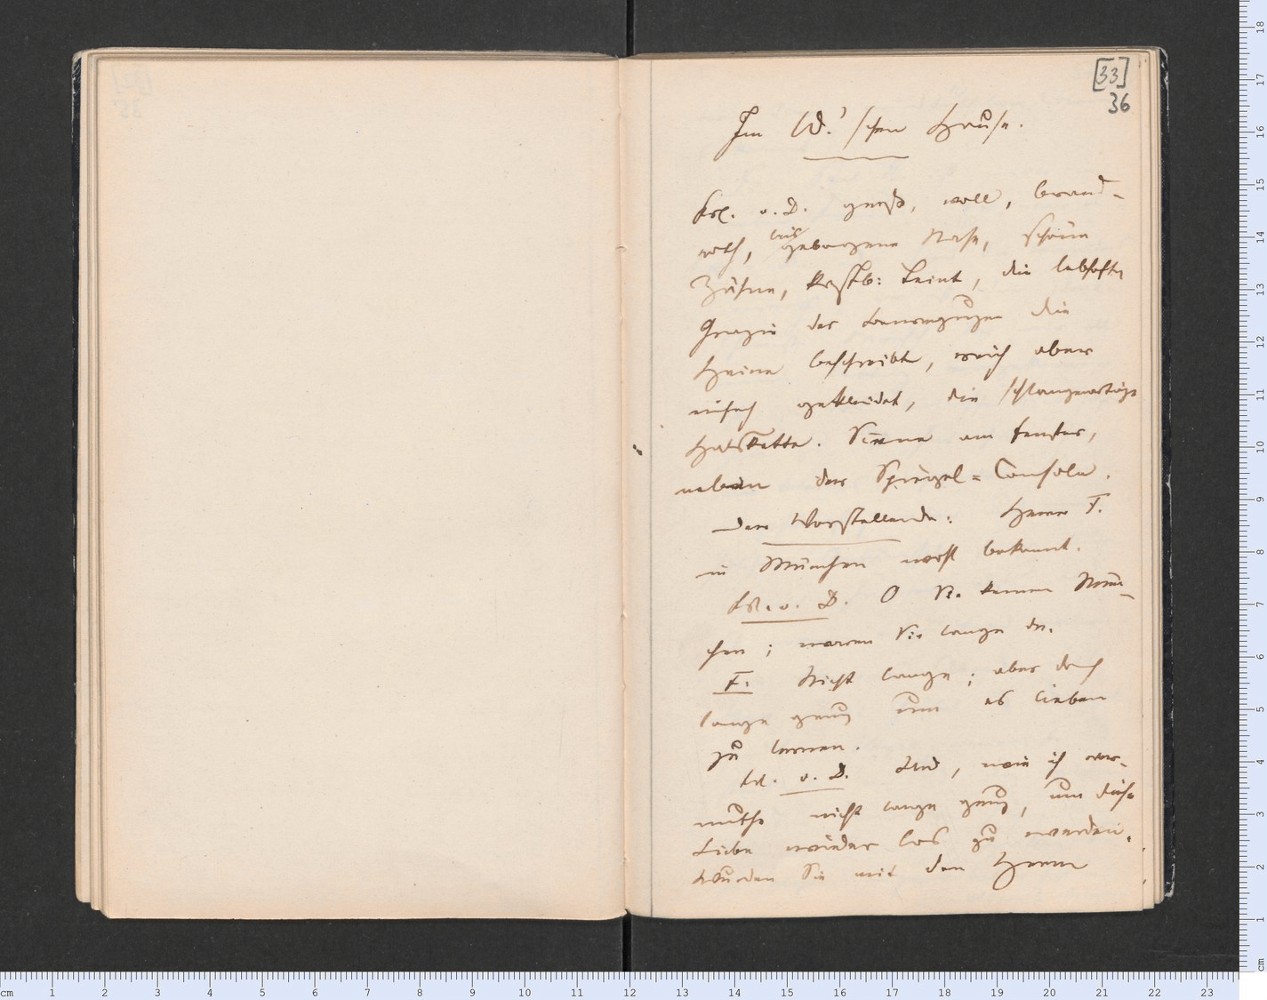 [33]
36
Im W.'schen Hause.
Frl. v. D. groß, voll, brand-
roth, gebogene Nase, schöne
Zähne, Teint, die lebhafte
Grazie der Bewegungen die
Heine beschreibt, reich aber
einfach gekleidet, die schlangenartige
Halskette. Scene am Fenster,
neben der Spiegel=Console.
Der Vorstellende: Herrn F.
in München wohl bekannt.
Frl. v. D. O Sie kennen Mün-
chen; waren Sie lange da.
F. Nicht lange; aber doch
lange genug um es lieben
zu lernen.
Frl. v. D. Und, wie ich ver-
muthe nicht lange genug, um diese
Liebe wieder los zu werden.
Wurden Sie mit den Herrn